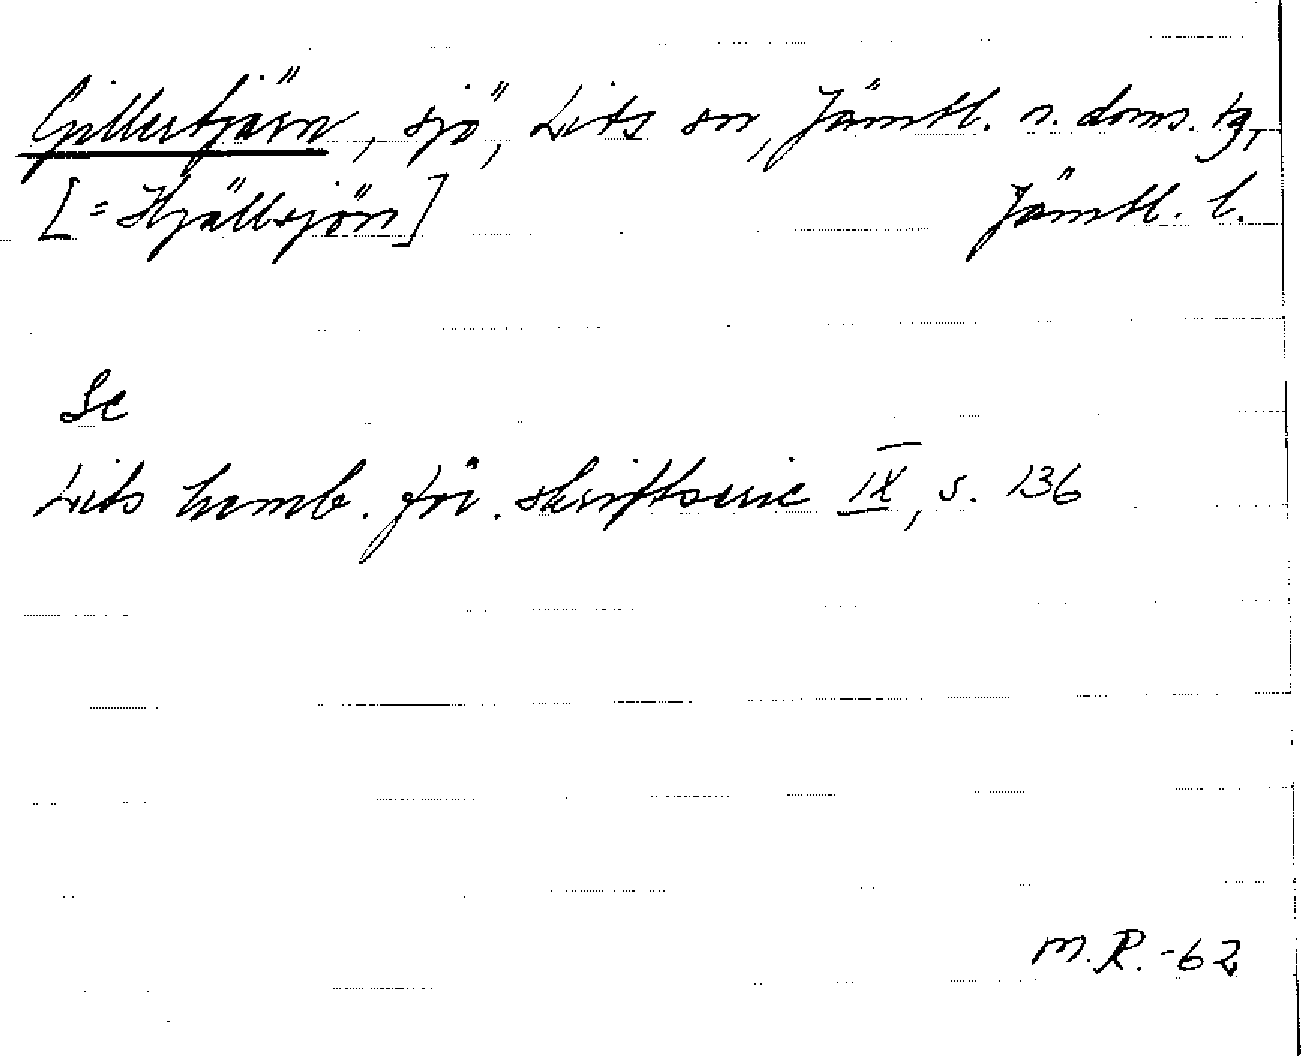 Gillertjärn, sjö, Lits sn, Jämtl. n. doms. tg,
[= Hjällsjön] Jämtl. l.
Se
Lits hemb. för. skriftserie IX, s. 136
M.R. -62